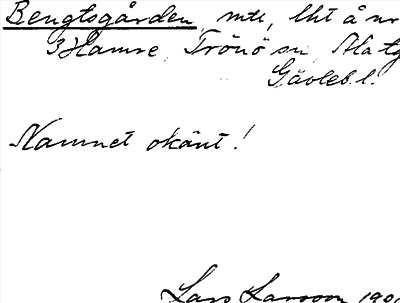 Bengtsgården, mtl, lht å nr
3 Hamre, Trönö sn, Ala tg
Gävleb. l.
Namnet okänt!
Lars Larsson 190